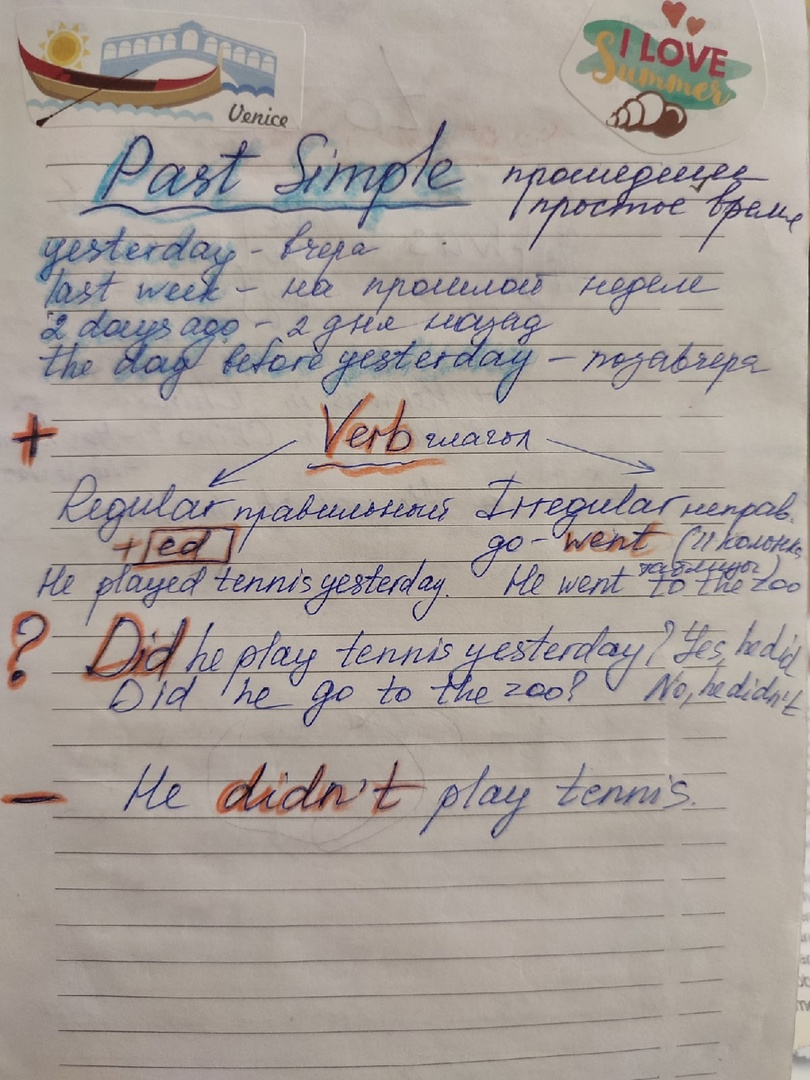 Venice
I LOVE
Summer
Past Simple прошедшее
простое время
yesterday - вчера
last week - на прошлой неделе
2 days ago - 2 дня назад
the day before yesterday - позавчера
+ Verb глагол
Regular правильный Irregular неправ.
+ed go - went (II колонка
таблицы)
He played tennis yesterday. He went to the zoo
? Did he play tennis yesterday? Yes, he did
Did he go to the zoo? No, he didn't
- He didn't play tennis.